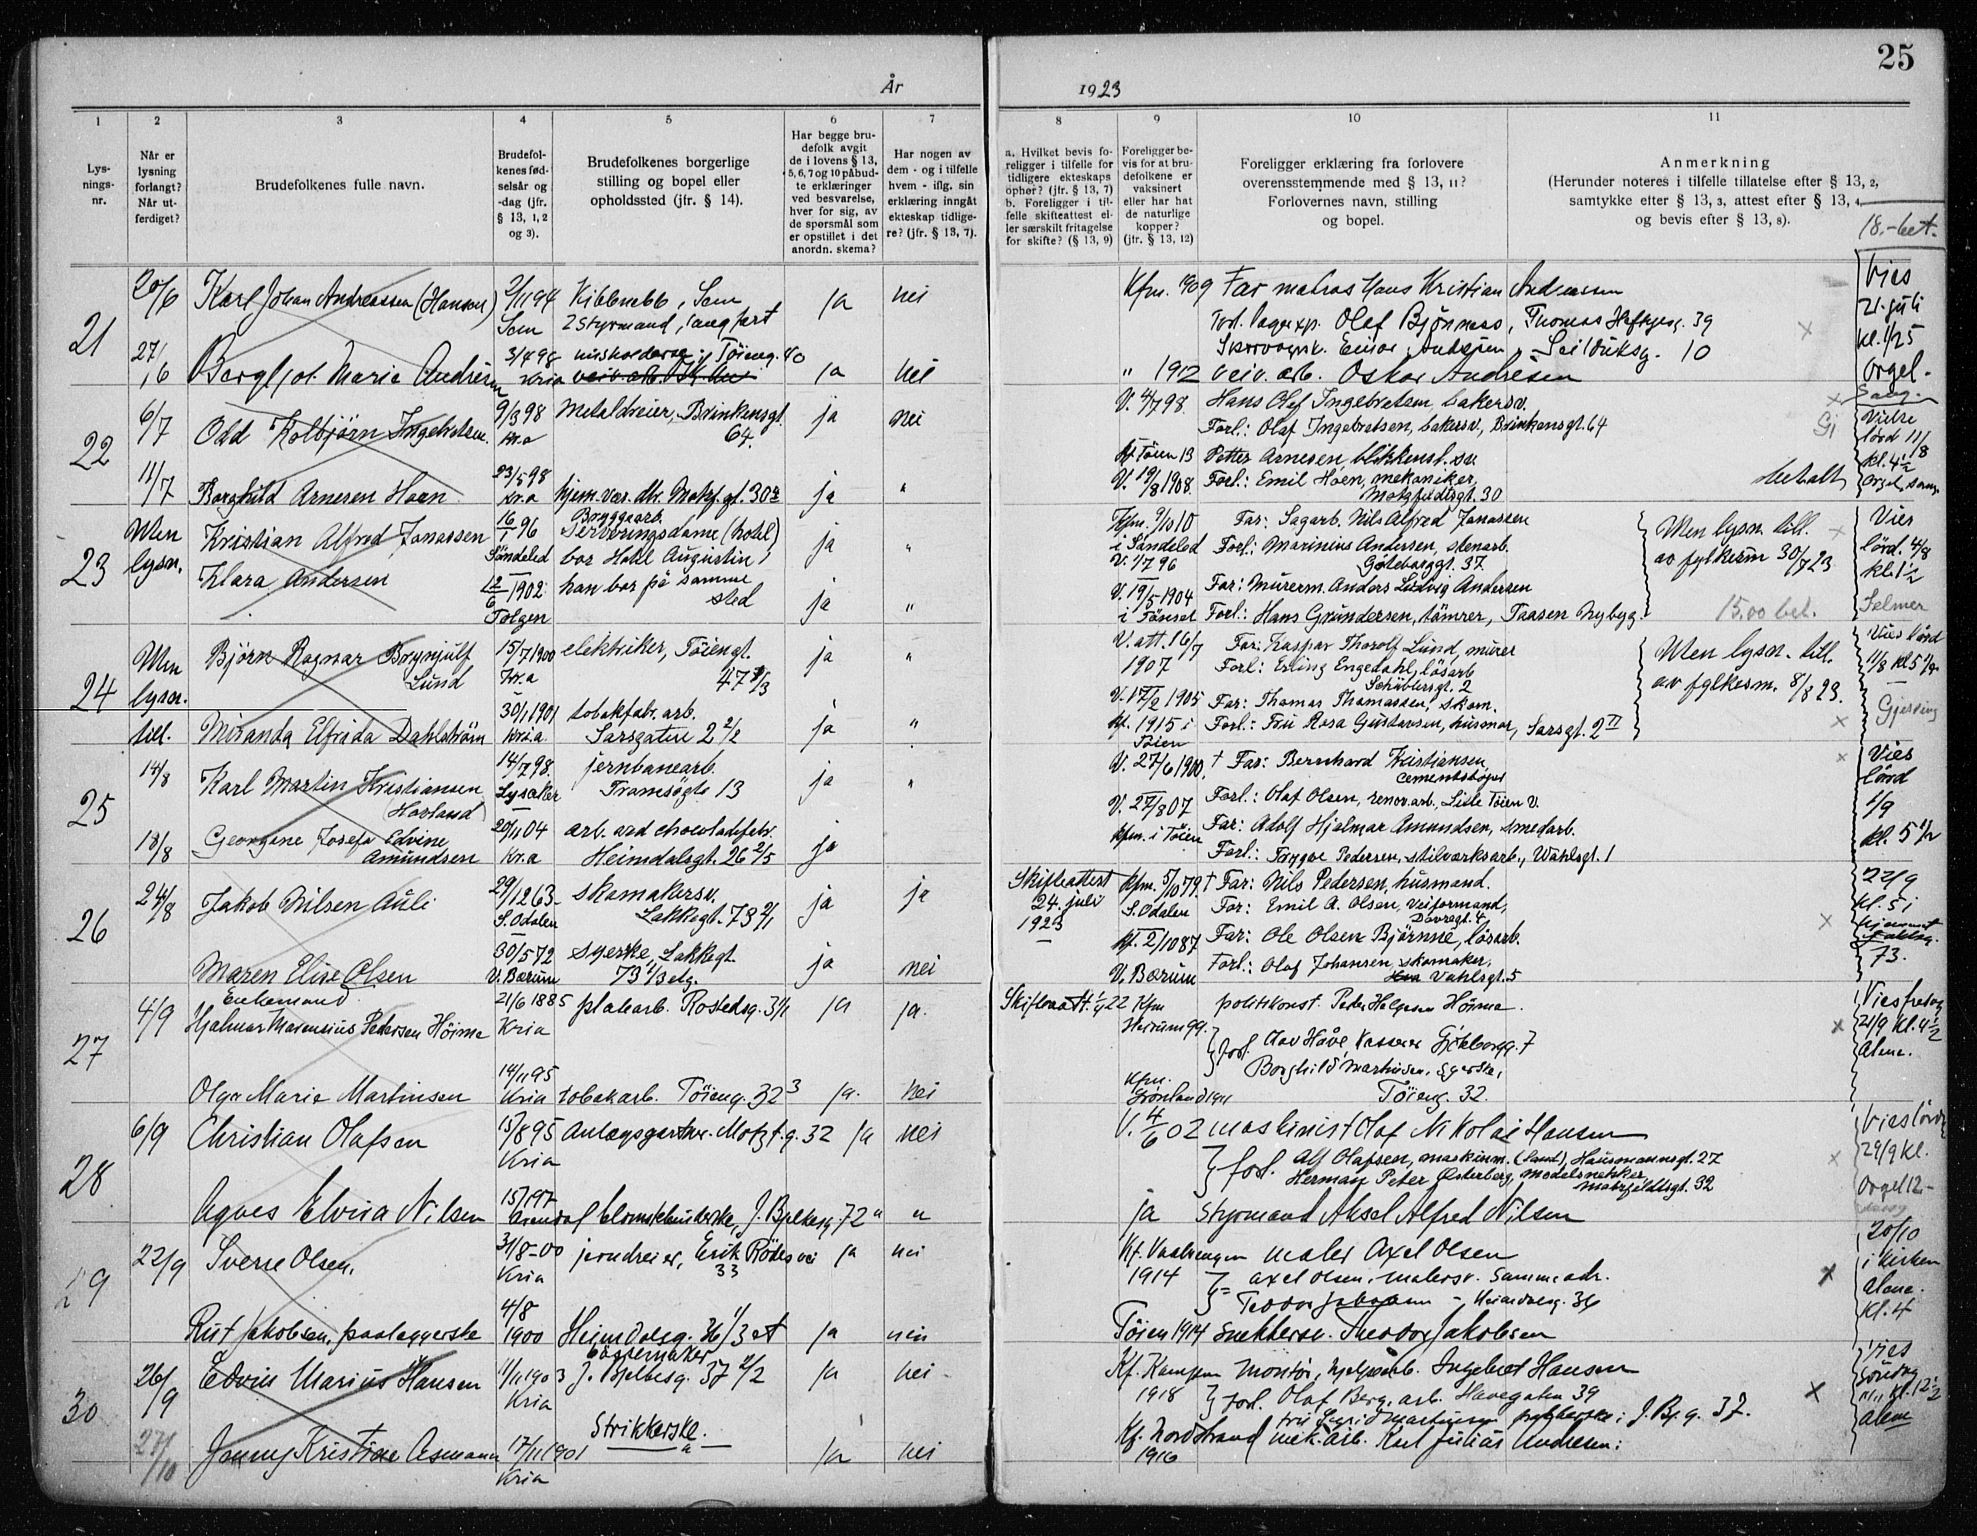 25
År
1923
1
2
3
4
5
6
7
8
9
10
11
Lys-
nings-
nr.
Når er
lysning
forlangt?
Når ut-
ferdiget?
Brudefolkenes fulle navn.
Brudefol-
kenes fød-
selsår og
-dag (jfr.
§ 13, 1, 2
og 3).
Brudefolkenes borgerlige
stilling og bopel eller
opholdssted (jfr. § 14).
Har begge bru-
defolk avgit
de i lovens § 13,
5, 6, 7 og 10 påbud-
te erklæringer
ved besvarelse,
hver for sig, av
de spørsmål som
er opstillet i det
anordn. skema?
Har nogen av
dem - og i tilfelle
hvem - iflg. sin
erklæring inngått
ekteskap tidlige-
re? (jfr. § 13, 7).
a. Hvilket bevis fo-
religger i tilfelle for
tidligere ekteskaps
ophør? (jfr. § 13, 7)
b. Foreligger i til-
felle skifteattest el-
ler særskilt fritagelse
for skifte? (§ 13, 9)
Foreligger be-
vis for at bru-
defolkene er
vaksinert
eller har hat
de naturlige
kopper?
(jfr. § 13, 12)
Foreligger erklæring fra forlovere
overensstemmende med § 13, 11?
Forlovernes navn, stilling
og bopel.
Anmerkning
(Herunder noteres i tilfelle tillatelse efter § 13, 2,
samtykke efter § 13, 3, attest efter § 13, 4
og bevis efter § 13, 8).
18.-bet.
21
20/6 Karl Johan Andreassen (Hansen) 2/11 94 Sem
Kibbnebb, Sem
2 styrmand, langfart
ja nei
Kfm. 1909 Far matros Hans Kristian Andreassen
Olaf Bjønness, Thomas Heftyesg. 39
Einar Andersen, Seilduksg. 10
Vies
21. juli
kl. 1/25
Orgel.
27/6 Bergljot Marie Andresen 3/4 98 Kria
Tøieng. 40
ja nei
" 1912 veiv. arb. Oskar Andresen
22
6/7 Odd Kolbjörn Ingebretsen 9/3 98 Kr.a
Metaldreier, Brinkensgt.
64.
ja nei
V. 4/7 98. Hans Olaf Ingebretsen bakersv.
Forl.: Olaf Ingebretsen, bakersv, Brinkensgt. 64
Vielse
lörd 11/8
kl. 4 1/2
11/7 Borghild Arnesen Hoen 23/5 98 Kr.a
hjem. vær. dtr. Motzf.gt. 30
ja "
Kf. Töien 13 Petter Arnesen blikkensl. sv.
V. 19/8 1908. Forl.: Emil Hoen, mekaniker,
Motzfeldtsgt. 30
betalt
23
Uten
lysn.
Kristian Alfred Jonassen 16/1 96 Söndeled
Bryggearb.
Serveringsdame (hotel)
bor Hotel Augustin 1
ja "
Kfm. 9/10 10 Far: Sagarb. Nils Alfred Jonassen
i Söndeled Forl.: Marinius Andersen, stenarb.
V. 1/7 96 Göteborggt. 37.
Uten lysn. till.
av fylkesm 30/7 23
Vies
lörd. 4/8
kl. 1 1/2
Selmer
Klara Andersen 12/6 1902. Tolgen
han bor på samme
sted
ja "
V. 19/5 1904 Far: Murerm. Anders Ludvig Andersen
i Tönset Forl: Hans Gundersen, tömrer, Taasen Nybyg.
15.00 bet.
24
Uten
lysn.
till.
Björn Ragnar Brynjulf
Lund
15/7 1900 Kr.a
elektriker, Töiengt.
47
ja "
V. att. 16/7 Far: Kaspar Thorolf Lund, murer
1907 Forl.: Erling Engedahl, lösarb
Schüblersgt. 2
Uten lysn. till.
av fylkesm. 8/8 23.
Vies lörd
11/8 kl 5
Miranda Elfrida Dahlström 30/1 1901 Kr.a
tobakfabr. arb.
Sarsgaten 2
ja "
V. 17/2 1905 Far: Thomas Thomassen, skom.
Kf. 1915 i Forl.: Fru Rosa Gustavsen, husmor, Sarsgt. 2 II
Töien
25
14/8 Karl Martin Kristiansen
Hovland
14/7 98. Lysaker
jernbanearb.
Tromsögt 13
ja "
V. 27/6 1900. † Far: Bernhard Kristiansen
cementstöper
Forl.: Olaf Olsen, renov.arb., Lille Töien V.
Vies
lörd
1/9
kl. 5 1/2
18/8 Georgine Josefa Edvine
Amundsen
20/11 04 Kr.a
arb. ved chocoladefabr.
Heimdalsgt. 26 2/5
ja
V. 27/8 07 Far: Adolf Hjalmar Amundsen, smedarb.
Kfm. i Töien Forl.: Trygve Pedersen, stilverksarb., Wahlsgt. 1
26
24/8 Jakob Nilsen Auli 29/12 63 S. Odalen
skomakersv.
Lakkegt. 73 2/1
ja ja
Skifteattest
24. juli
1923
Kfm. 5/10 79. † Far: Nils Pedersen, husmand.
S. Odalen Far: Emil A. Olsen, Veiformand,
Dovregt. 4
22/9
kl. 5 i
hjemmet
Lakkeg.
73.
Maren Elise Olsen 30/5 72 V. Bærum
syerske, Lakkegt.
73 1/3 etg.
ja nei
Kf. 2/10 87 Far: Ole Olsen Björnne, lösarb.
V. Bærum Forl.: Olaf Johansen, skomaker,
Vahlsgt. 5
27
4/9 Enkemand
Hjalmar Marensius Pedersen Höime 21/6 1885 Kria
platearb. Rostedsg. 3
ja ja.
Skifteatt. 22
Kfm politikonst. Peder Helgesen Höime
Forl. Aav Håve, kasserer Gjøkbergg. 7
Borghild Martinsen, syerske,
Töieng. 32.
Vies fredag
21/9 kl. 4 1/2
Alene.
Olga Marie Martinsen 14/11 95 Kria
tobakarb. Töieng. 32 3
ja. nei
Kfm.
Grønland 1911
28
6/9 Christian Olafsen 13/8 95 Kria
Anlægsgartner. Motzf.g. 32
ja nei
V. 4/6 02 maskinist Olaf Nikolai Hansen
forl. Alf Olafsen, maskinm. (land), Hausmannsgt. 27
Herman Peter Österberg, Modelsnekker
Motzfeldtsgt. 32
Vies lörd
29/9 kl.
Orgel 12-
Agnes Elvira Nilsen Arendal
blomsterbinderske, J. Bjelkesg. 72
" "
ja Styrmand Aksel Alfred Nilsen
29
22/9 Sverre Olsen. 31/8-00 Kria
jerndreier, Erik Rödes vei
33
ja nei
Kf. Vaalerengen maler Axel Olsen
1914 = Axel Olsen, malersv. Samme adr.
Teodor Jakobsen - Heimdalsg. 36
20/10
i kirken
alene.
kl. 4
Rut Jakobsen, paaleggerske 4/8 1900
Heimdalsg. 36 1/3 et
ja nei
Töien 1914 Snekkersv. Theodor Jakobsen
30
26/9 Edvin Marius Hansen 11/11 1903 Kria
Børstemaker
J. Bjelkesg. 37 2/2
ja nei
Kf. Kampen Montör, hjelpearb. Ingebret Hansen
1918 Forl. Olaf Berg, arb. Havegaten 39
fru Sigrid Martinsen J. Bj. g. 37.
Vies
Söndag
kl. 12 1/2
alene
27/10 Jenny Kristine Asmann 17/11 1901 Kria
Strikkerske.
ja nei
Kf. Nordstrand mek. arb. Karl Julius Andresen.
1916